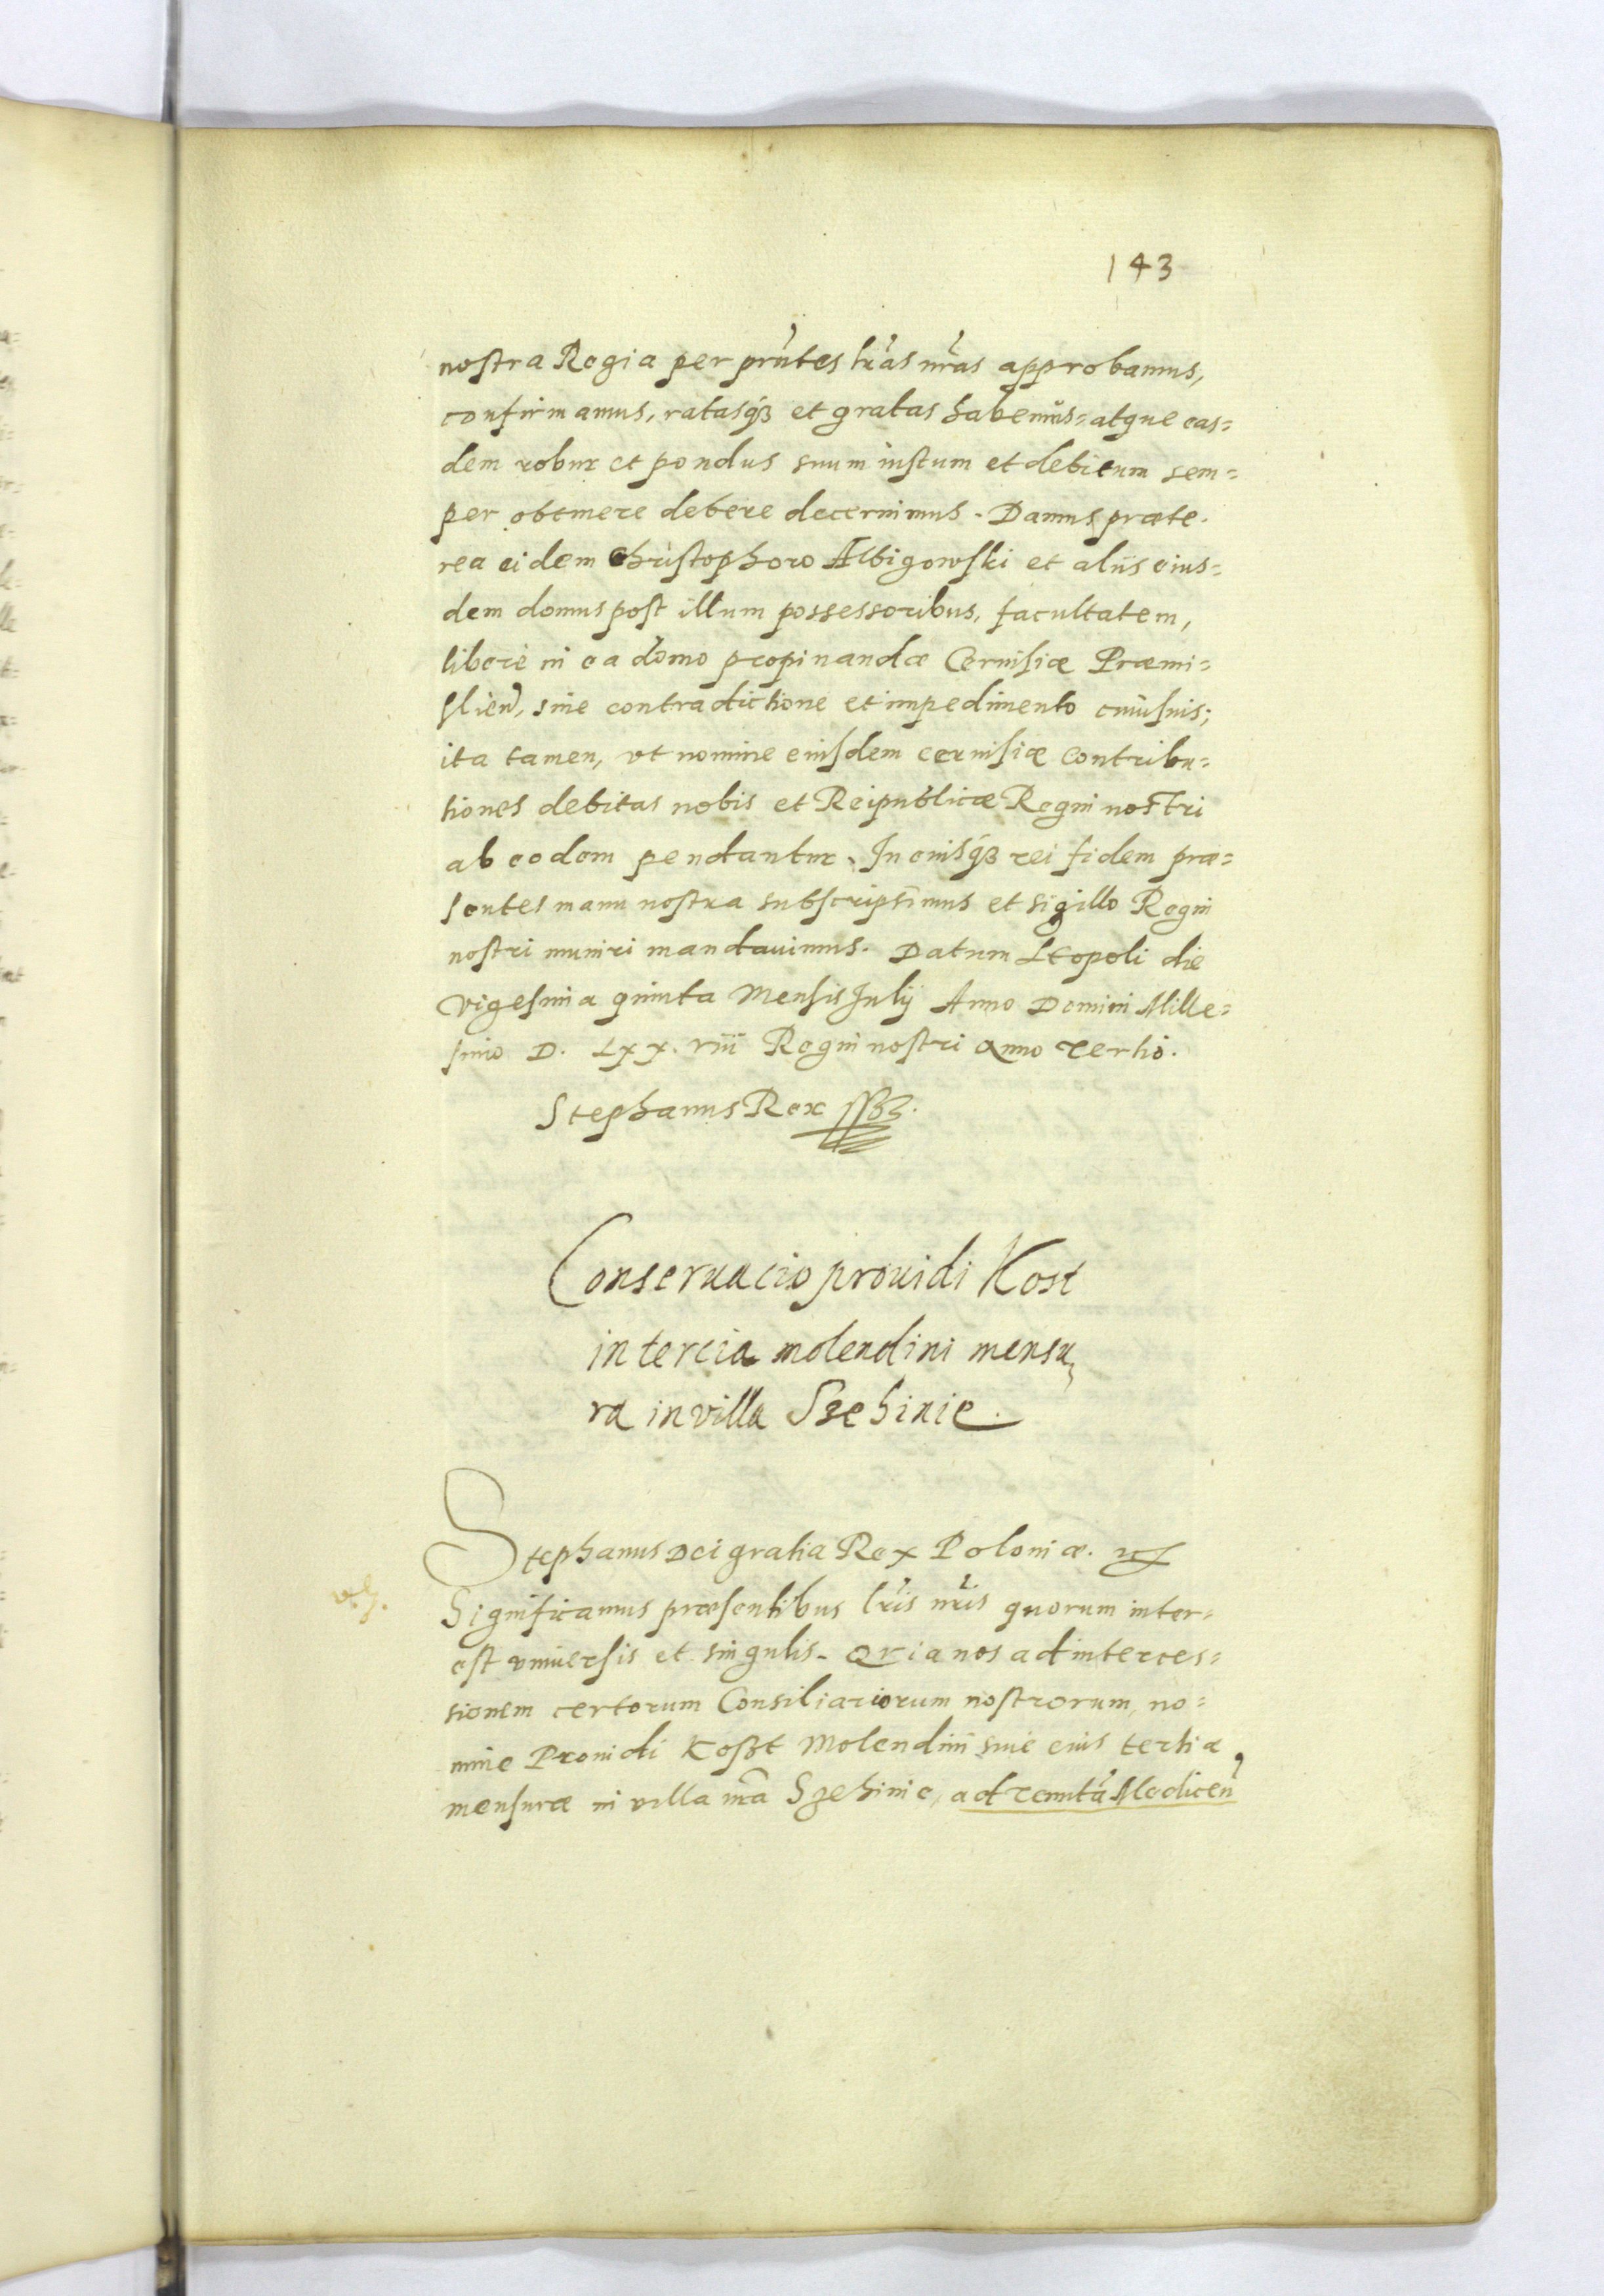 143
nostra Regia per prñtes lr̃as nr̃as approbamus,
confirmamus, ratasq3 et gratas habemus= atque eas=
dem robur et pondus suum iustum et debitum sem=
per obtinere debere decernimus. Damus præte.
rea eidem Christophoro Albigowski et aliis eius=
dem domus post illum possessoribus, facultatem,
liberè in ea domo propinandæ Cervisiæ Præmi=
slieñ, sine contradictione et impedimento cuiusuis;
ita tamen, vt nomine eiusdem cervisiæ contribu=
tiones debitas nobis et Reipublicæ Regni nostri
ab eodem pendantur. In cuiusq3 rei fidem præ=
sentes manu nostra subscripsimus et sigillo Regni
nostri muniri mandauimus. Datum Leopoli die
vigesima quinta Mensis Julij Anno Domini Mille=
simo D. Lxx. viii Regni nostri anno tertio.
Stephanus Rex
Conseruacio prouidi Kost
in tercia molendini mensu
ra in villa Szehinie.
Stephanus Dei gratia Rex Poloniæ.
Significamus præsentibus lr̃is nr̃is quorum inter=
est vniuersis et singulis. Qvia nos ad interces=
sionem certorum Consiliariorum nostrorum, no=
mine Prouidi Koszt Molendini siue eius tertiæ
mensuræ in villa nr̃a Szehinie, ad tenutã Mediceñ